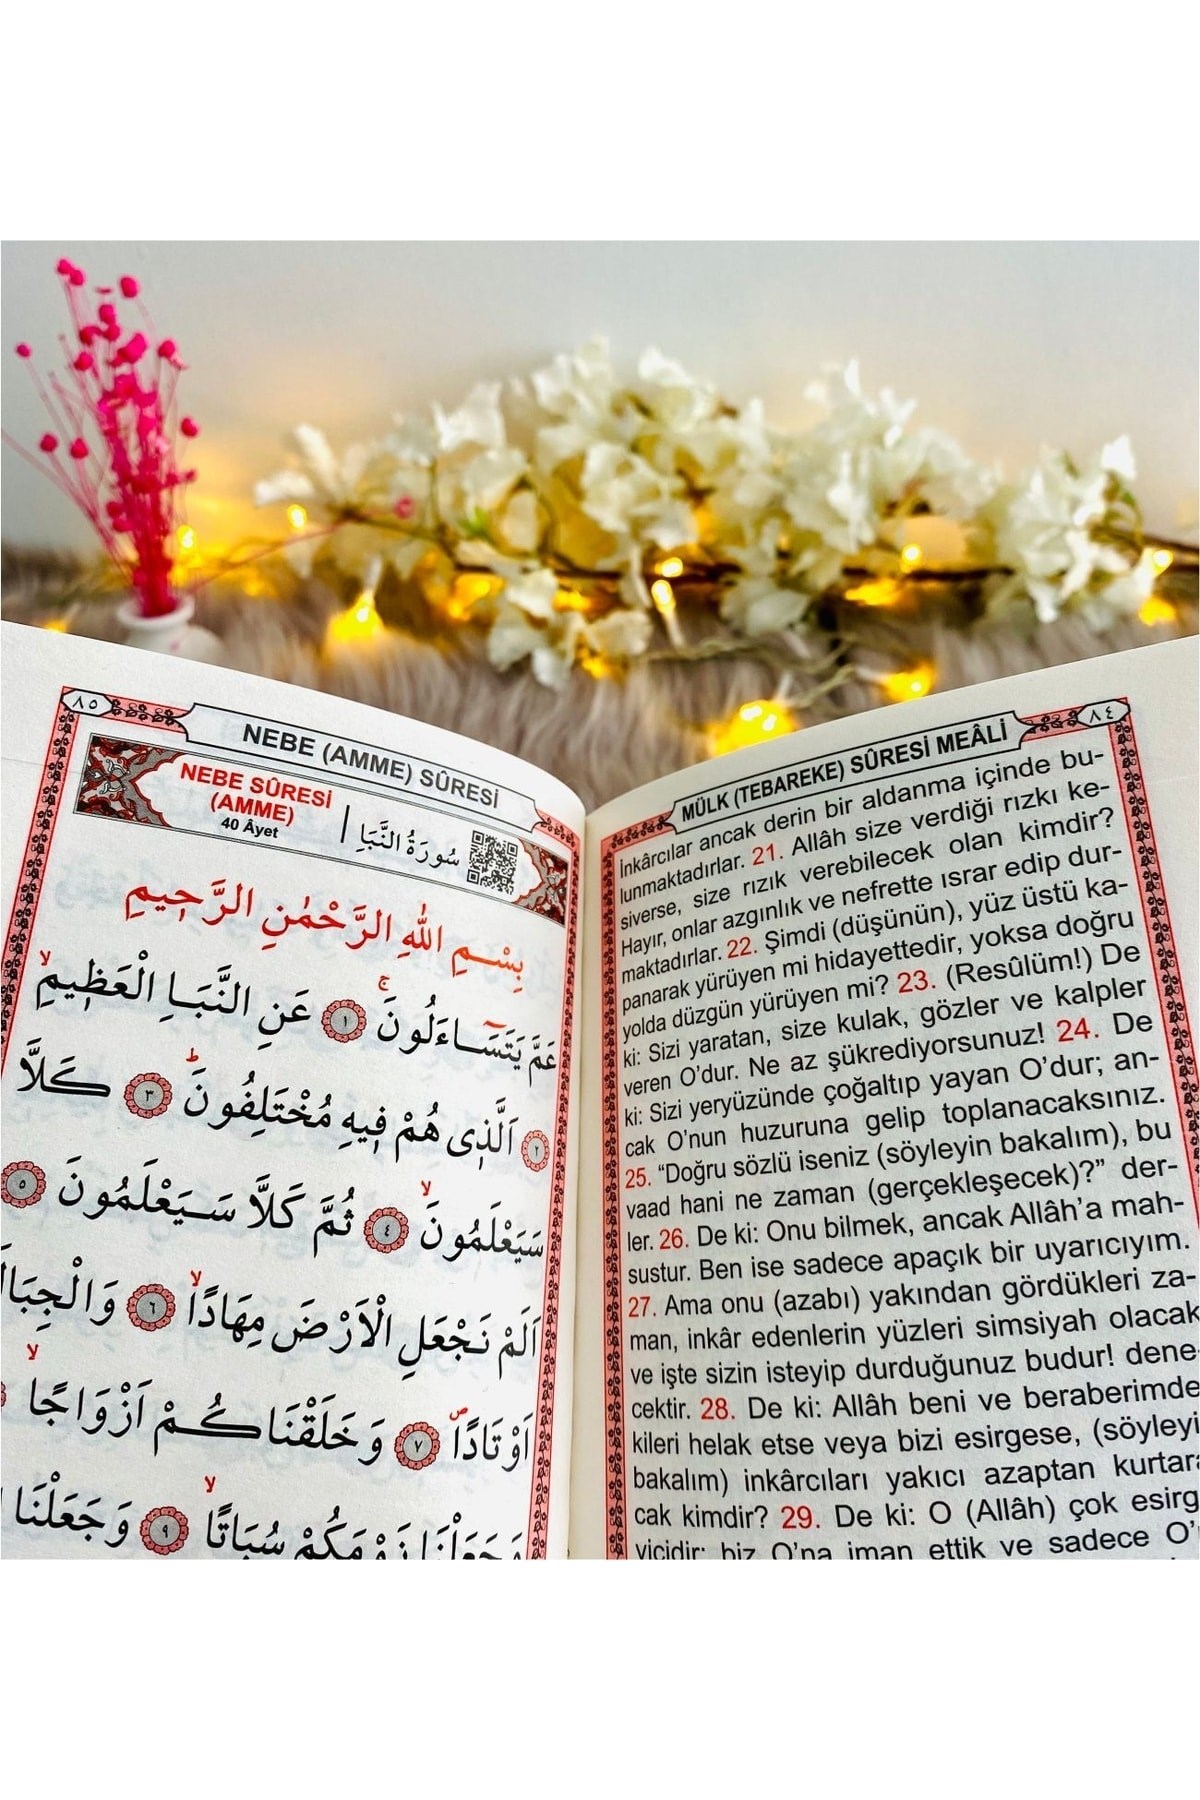 ٨٥
NEBE (AMME) SÛRESİ
NEBE SÛRESİ
(AMME)
40 Âyet
سُورَةُ النَّبَأِ
بِسْمِ اللّٰهِ الرَّحْمٰنِ الرَّحٖيمِ
عَمَّ يَتَسَٓاءَلُونَۚ ﴿١﴾ عَنِ النَّبَاِ الْعَظٖيمِۙ
﴿٢﴾ اَلَّذٖى هُمْ فٖيهِ مُخْتَلِفُونَؕ ﴿٣﴾ كَلَّا
سَيَعْلَمُونَۙ ﴿٤﴾ ثُمَّ كَلَّا سَيَعْلَمُونَ ﴿٥﴾
اَلَمْ نَجْعَلِ الْاَرْضَ مِهَادًاۙ ﴿٦﴾ وَالْجِبَالَ
اَوْتَادًاۖ ﴿٧﴾ وَخَلَقْنَاكُمْ اَزْوَاجًاۙ
وَجَعَلْنَا نَوْمَكُمْ سُبَاتًاۙ ﴿٩﴾ وَجَعَلْنَا
٨٤
MÜLK (TEBAREKE) SÛRESİ MEÂLİ
İnkârcılar ancak derin bir aldanma içinde bu-
lunmaktadırlar. 21. Allâh size verdiği rızkı ke-
siverse, size rızık verebilecek olan kimdir?
Hayır, onlar azgınlık ve nefrette ısrar edip dur-
maktadırlar. 22. Şimdi (düşünün), yüz üstü ka-
panarak yürüyen mi hidayettedir, yoksa doğru
yolda düzgün yürüyen mi? 23. (Resûlüm!) De
ki: Sizi yaratan, size kulak, gözler ve kalpler
veren O’dur. Ne az şükrediyorsunuz! 24. De
ki: Sizi yeryüzünde çoğaltıp yayan O’dur; an-
cak O’nun huzuruna gelip toplanacaksınız.
25. “Doğru sözlü iseniz (söyleyin bakalım), bu
vaad hani ne zaman (gerçekleşecek)?” der-
ler. 26. De ki: Onu bilmek, ancak Allâh’a mah-
sustur. Ben ise sadece apaçık bir uyarıcıyım.
27. Ama onu (azabı) yakından gördükleri za-
man, inkâr edenlerin yüzleri simsiyah olacak
ve işte sizin isteyip durduğunuz budur! dene-
cektir. 28. De ki: Allâh beni ve beraberimde
kileri helak etse veya bizi esirgese, (söyleyi
bakalım) inkârcıları yakıcı azaptan kurtara
cak kimdir? 29. De ki: O (Allâh) çok esirg
yicidir; biz O’na iman ettik ve sadece O’